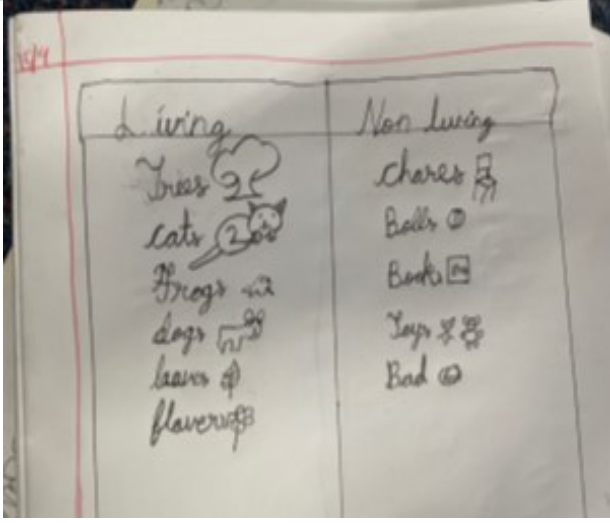 Living
Non living
Tries
chares
cats
Balls
Frogs
Books
dogs
Toys
leaves
Bad
flavers